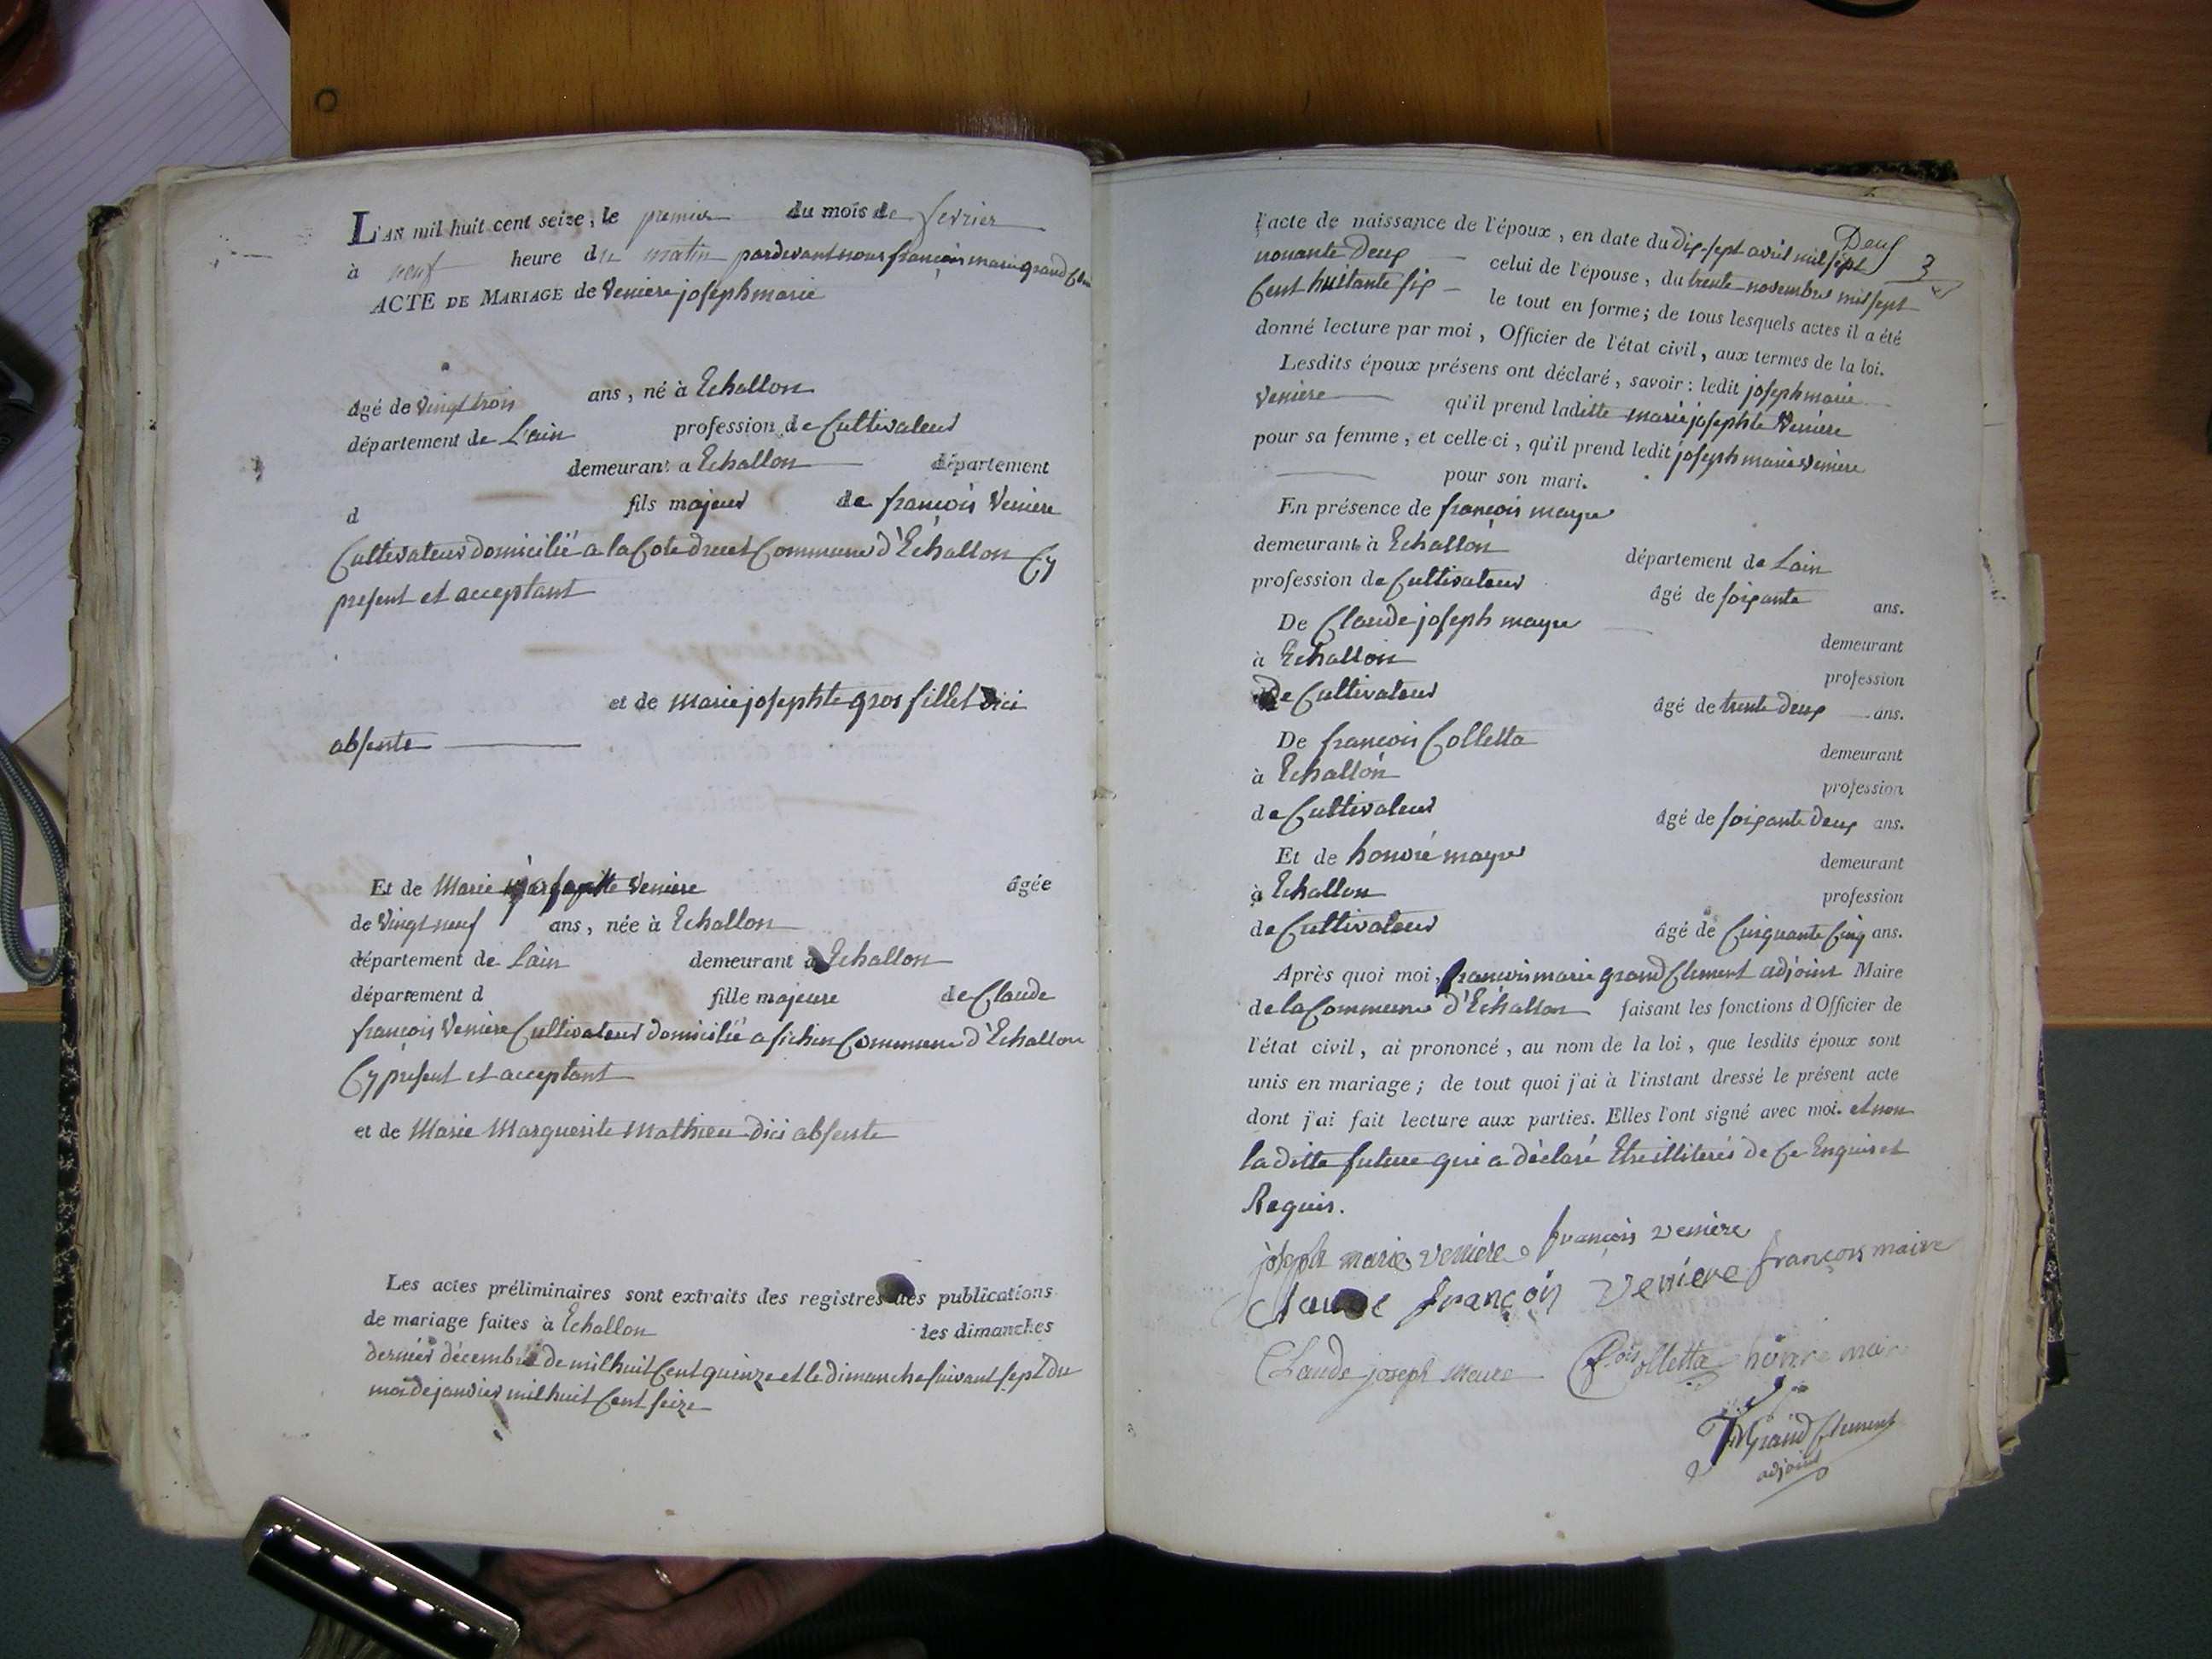 L'AN mil huit cent seize, le premier du mois de fevrier
à neuf heure du matin pardevant nous françois marie grand Clem
ACTE DE MARIAGE de Veniere joseph marie
âgé de Vingt trois ans, né à Echallon
département de L'ain profession de Cultivateur
demeurant a Echallon département
d fils majeur de françois Veniere
Cultivateur domicilié a la Cote Commune d'Echallon Cy
present et acceptant
et de marie josephte gros fillet d'ici
absente
Et de Marie josephte Veniere âgée
de Vingt neuf ans, née à Echallon
département de Lain demeurant à Echallon
département d fille majeure de Claude
françois Veniere Cultivateur domicilié a Commune d'Echallon
Cy present et acceptant
et de Marie Marguerite Mathieu d'ici absente
Les actes préliminaires sont extraits des registres des publications
de mariage faites à Echallon les dimanches
dernier décembre de mil huit Cent quinze et le dimanche suivant sept du
moi de janvier mil huit Cent seize
Deux 3
l'acte de naissance de l'époux, en date du dix-sept avril mil sept
nonante Deux celui de l'épouse, du trente novembre mil sept
Cent huitante six le tout en forme; de tous lesquels actes il a été
donné lecture par moi, Officier de l'état civil, aux termes de la loi.
Lesdits époux présens ont déclaré, savoir: ledit joseph marie
Veniere qu'il prend laditte marie josephte Veniere
pour sa femme, et celle-ci, qu'il prend ledit joseph marie Veniere
pour son mari.
En présence de françois mayre
demeurant à Echallon département de Lain
profession de Cultivateur âgé de soixante ans.
De Claude joseph mayre demeurant
à Echallon profession
de Cultivateur âgé de trente deux ans.
De françois Colletta demeurant
à Echallon profession
de Cultivateur âgé de soixante deux ans.
Et de honoré mayre demeurant
à Echallon profession
de Cultivateur âgé de Cinquante Cinq ans.
Après quoi moi, francois marie grand Clement adjoint Maire
de la Commune d'Echallon faisant les fonctions d'Officier de
l'état civil, ai prononcé, au nom de la loi, que lesdits époux sont
unis en mariage; de tout quoi j'ai à l'instant dressé le présent acte
dont j'ai fait lecture aux parties. Elles l'ont signé avec moi. et non
la ditte future qui a déclaré Etre illiterés de Ce Enquis et
Requis.
joseph marie veniere françois veniere
Claude françois Veniere françois maire
Claude joseph meure fois Colletta honre mair
Grand Clement
adjoint